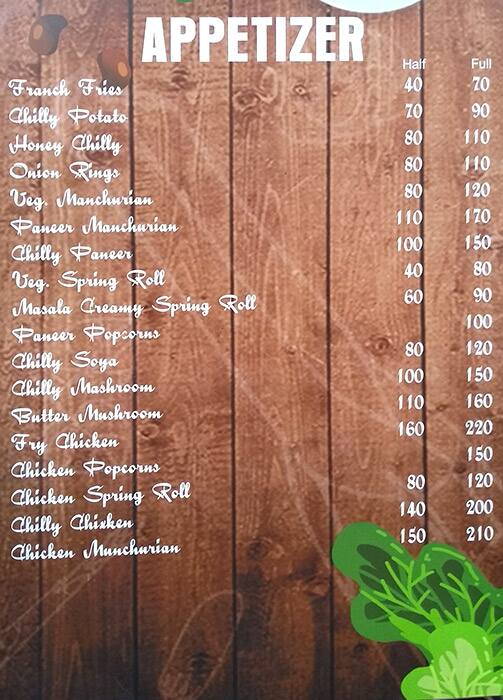 APPETIZER
Half Full
Franch Fries 40 70
Chilly Potato 70 90
Honey Chilly 80 110
Onion Rings 80 110
Veg. Manchurian 80 120
Paneer Manchurian 110 170
Chilly Paneer 100 150
Veg. Spring Roll 40 80
Masala Creamy Spring Roll 60 90
Paneer Popcorns 100
Chilly Soya 80 120
Chilly Mashroom 100 150
Butter Mushroom 110 160
Fry Chicken 160 220
Chicken Popcorns 150
Chicken Spring Roll 80 120
Chilly Chixken 140 200
Chicken Munchurian 150 210